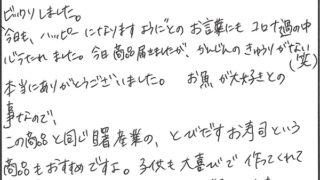 ビックリしました。
今日も、ハッピーになりますようにとのお言葉にも コロナ過の中
心うたれました。今日商品届きましたが、かんじんのきゅうりがない(笑)
本当にありがとうございました。 お魚が大好きとの
事なので、
この商品と同じ曙産業の、とびだすお寿司という
商品もおすすめですよ。子供も大喜びで作ってくれて